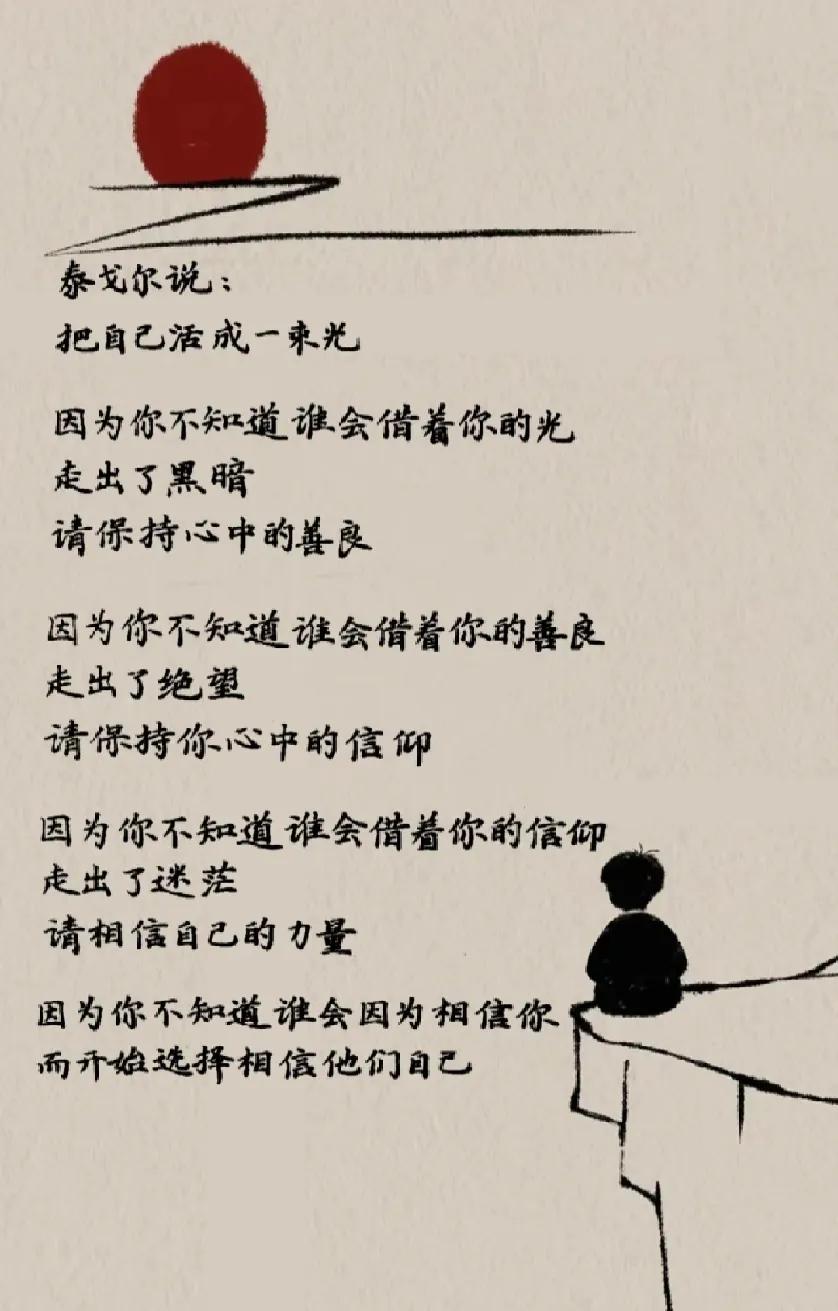 泰戈尔说：
把自己活成一束光
因为你不知道谁会借着你的光
走出了黑暗
请保持心中的善良
因为你不知道谁会借着你的善良
走出了绝望
请保持你心中的信仰
因为你不知道谁会借着你的信仰
走出了迷茫
请相信自己的力量
因为你不知道谁会因为相信你
而开始选择相信他们自己